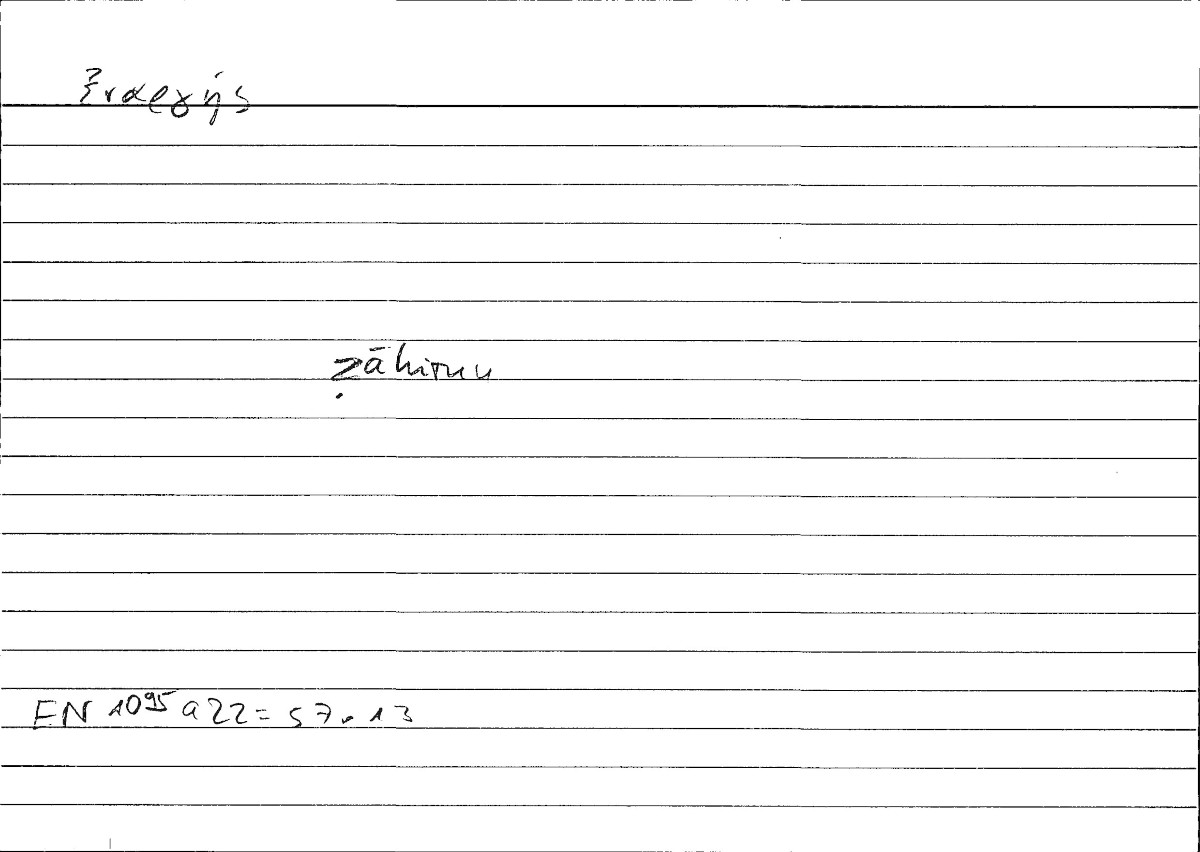 ἐναργής
ẓāhirun
EN 10⁹⁵ a 22 = 57.13